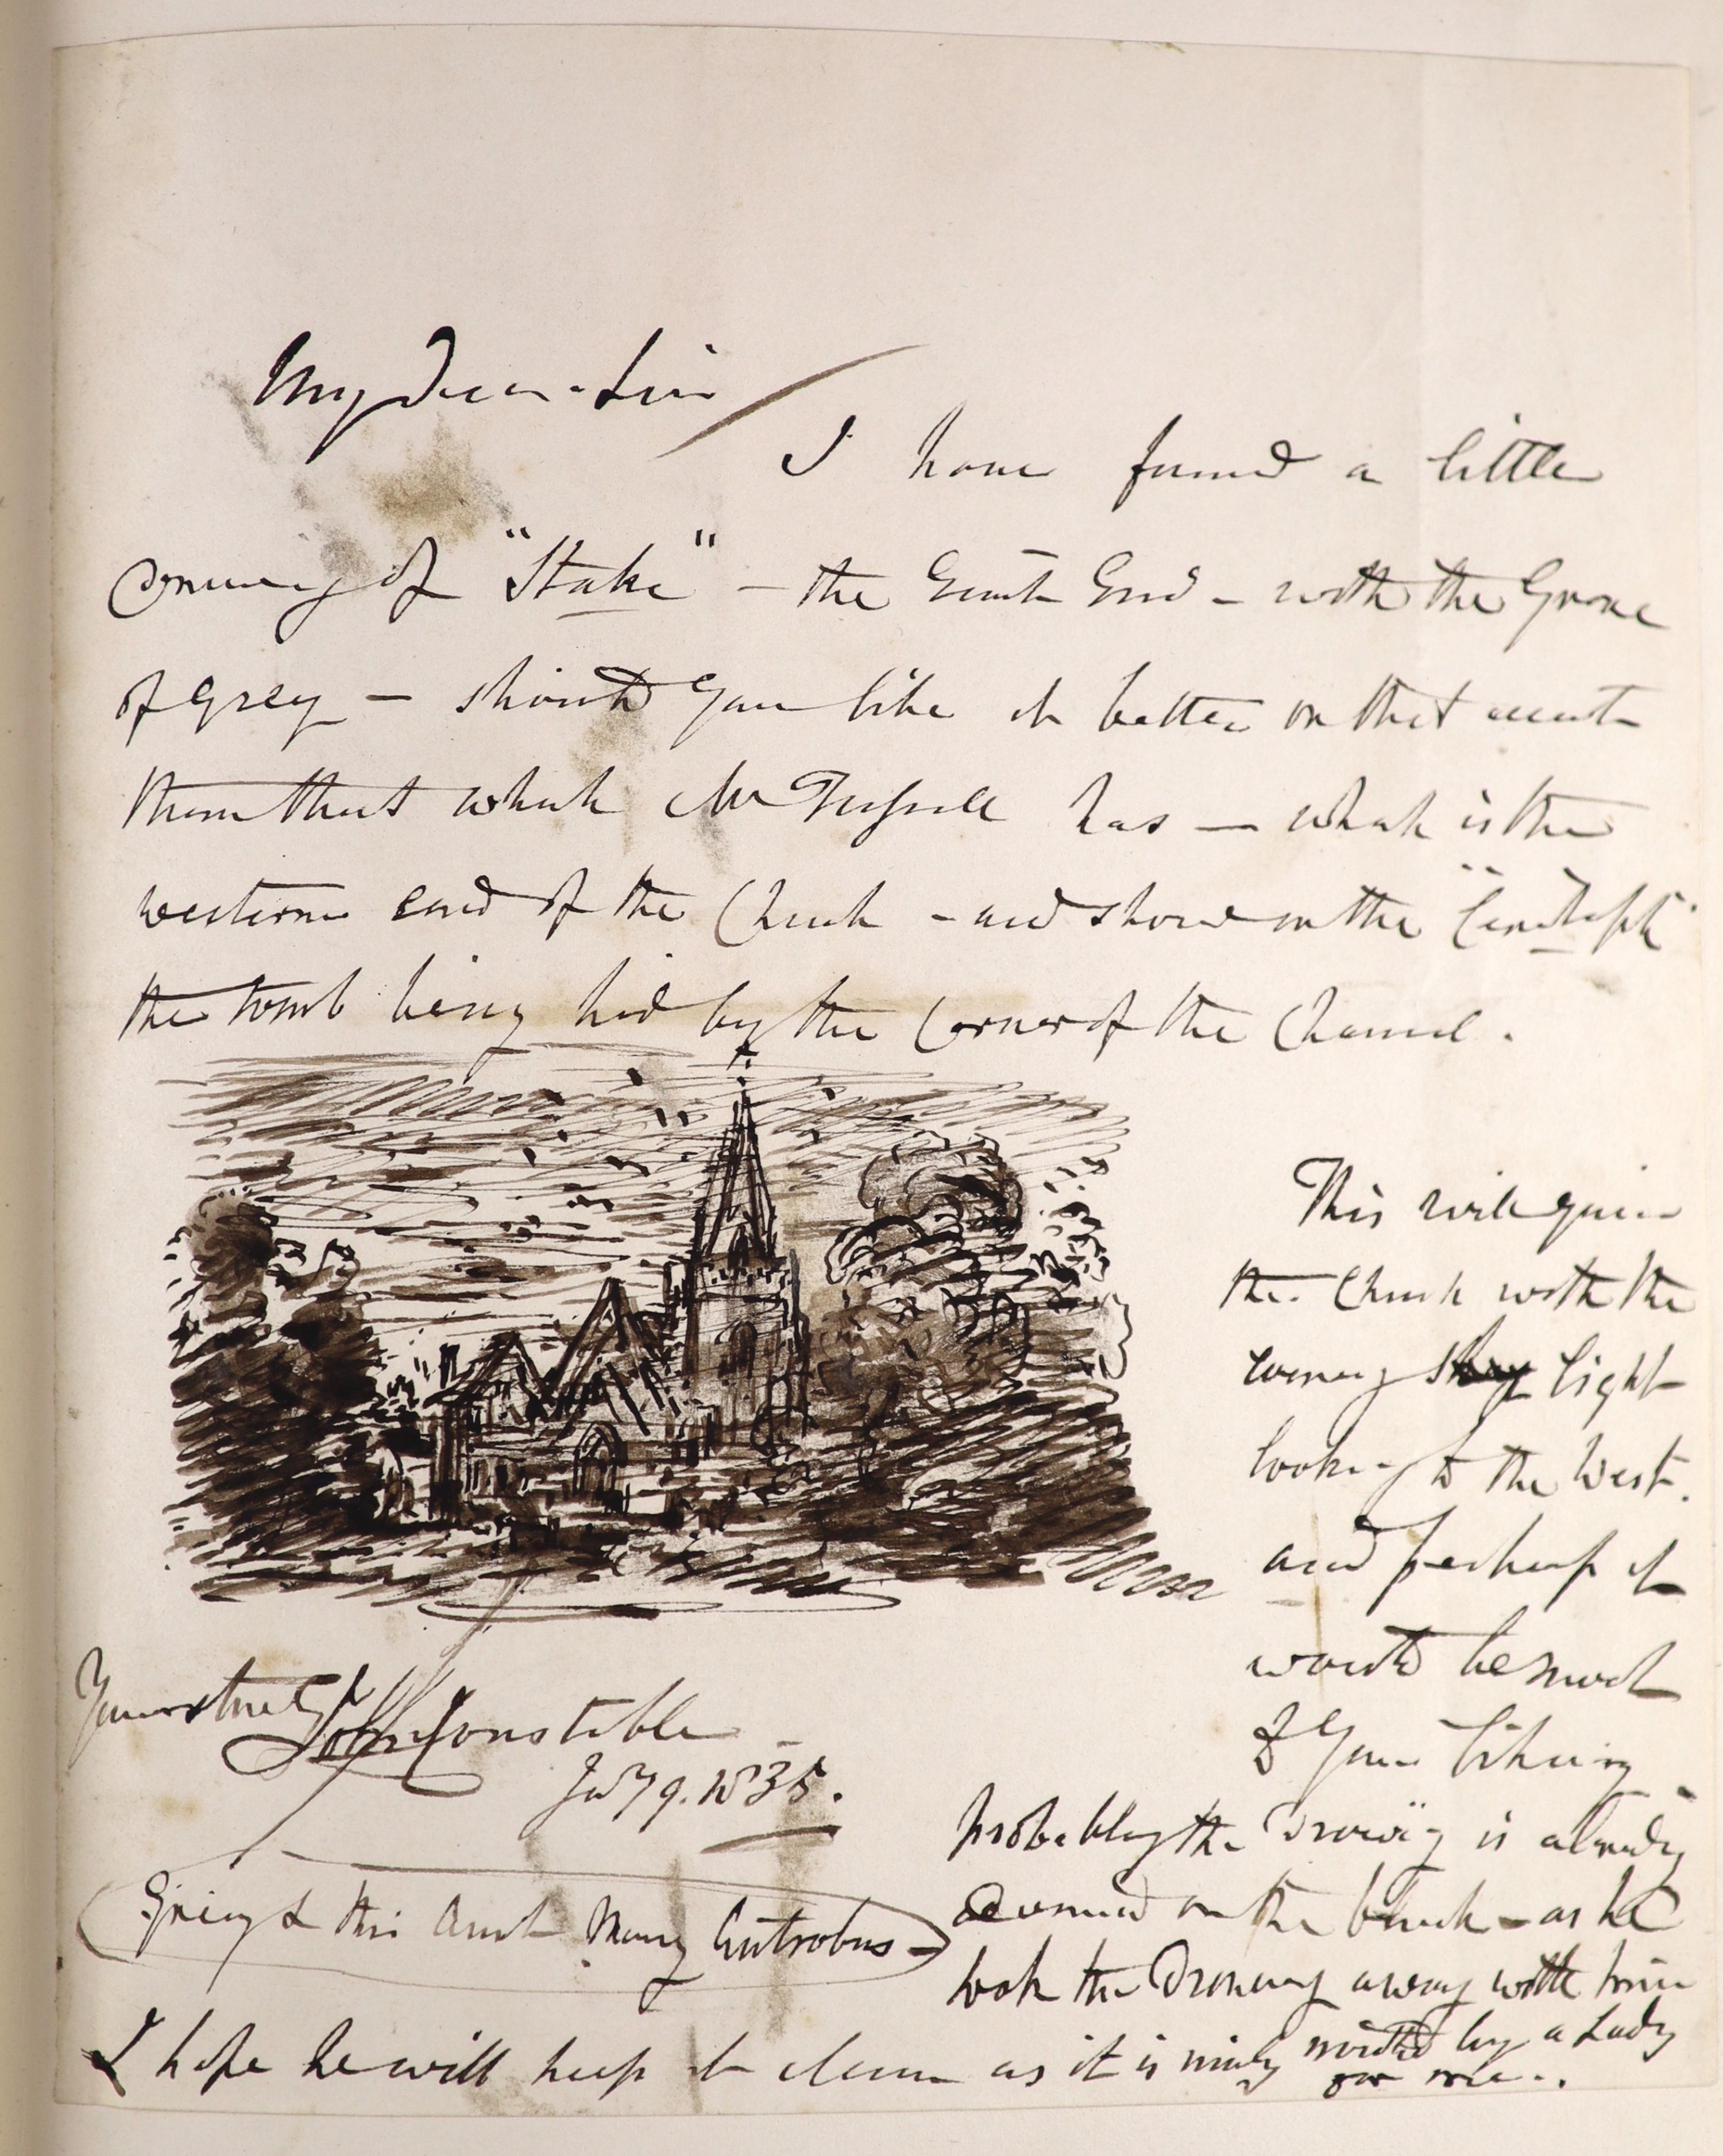 My Dear Sir
I have found a little
Drawing of "Stoke" - the East End - with the Grave
of Grey - should you like it better on that account
than that which Mr Fussell has - which is the
western end of the Church - and shows on the
the tomb being hid by the Corner of the Chancel.
This will give
the Church with the
evening light
looking to the West.
and perhaps it
would be most
to your liking
probably the Drawing is already
on the block - as he
took the Drawing away with him
I hope he will keep it clean as it is nicely by a Lady
for me..
Yours truly
John Constable
July 9. 1835.
Grey & his Aunt Mary Antrobus -